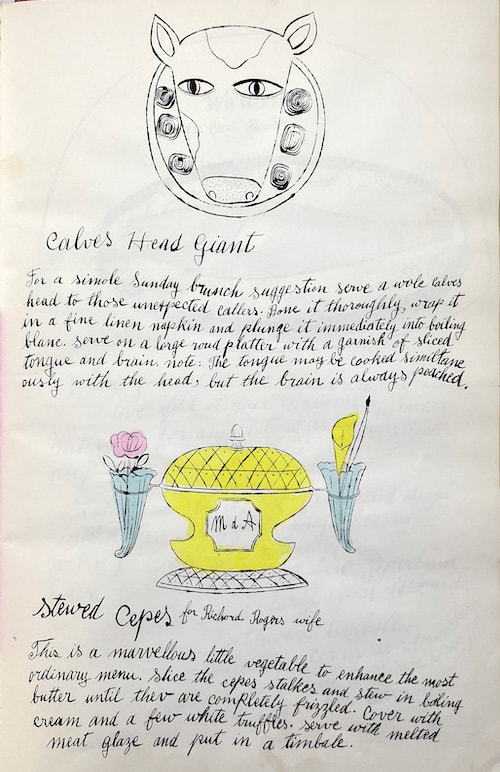 Calves Head Giant
For a simole Sunday brunch suggestion serve a wole calves
head to those unexpected callers. Bone it thoroughly, wrap it
in a fine linen napkin and plunge it immediately into boiling
blanc. serve on a large roud platter with a garnish of sliced
tongue and brain. note: The tongue may be cooked similtane
ously with the head, but the brain is always poached.
M d A
stewed Cepes for Richard Rogers wife
This is a marvellous little vegetable to enhance the most
ordinary menu. slice the cepes stalkes and stew in boiling
butter until thev are completly frizzled. Cover with
cream and a few white truffles. serve with melted
meat glaze and put in a timbale.